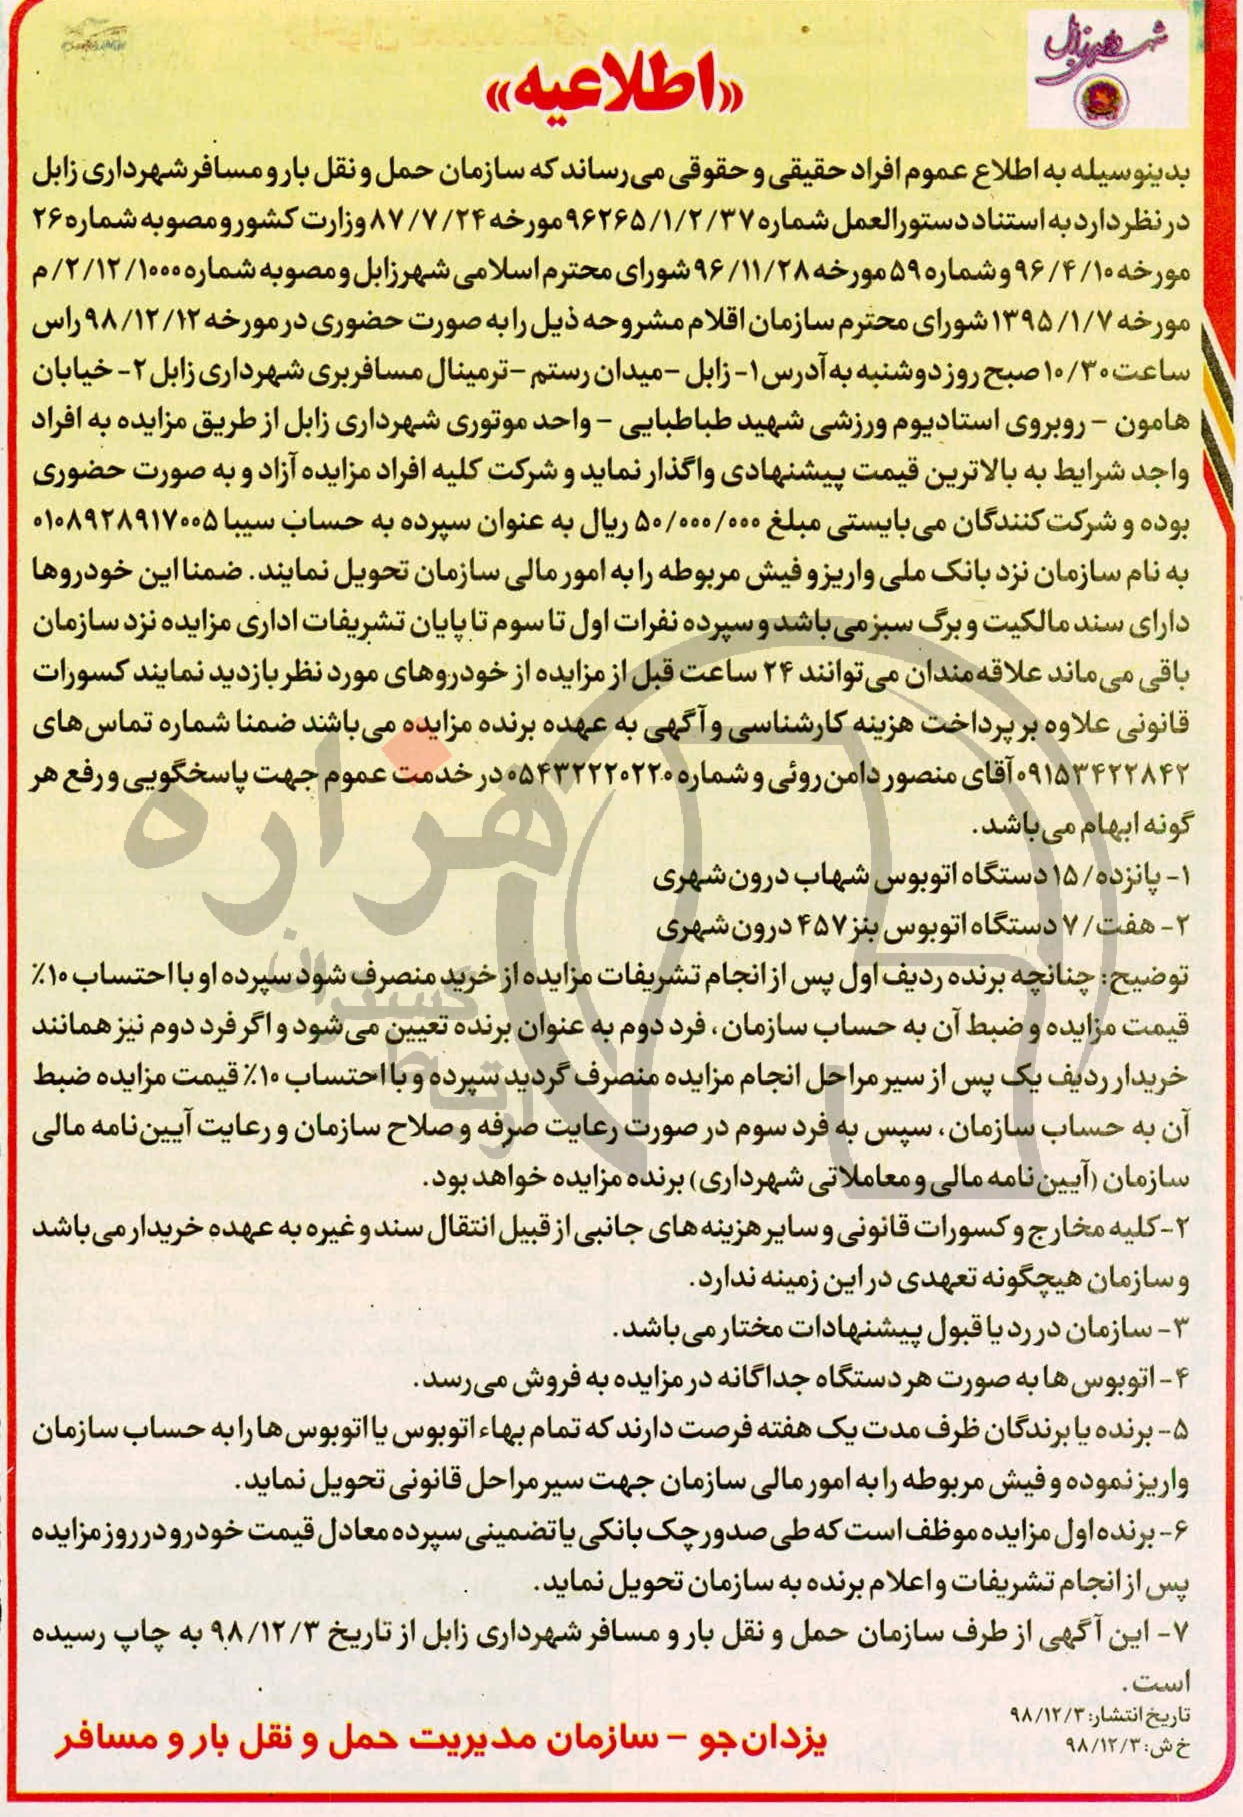 شهرداری زابل
«اطلاعیه»
بدینوسیله به اطلاع عموم افراد حقیقی و حقوقی می‌رساند که سازمان حمل و نقل بار و مسافر شهرداری زابل
در نظر دارد به استناد دستورالعمل شماره ۹۶۲۶۵/۱/۲/۳۷ مورخه ۸۷/۷/۲۴ وزارت کشور و مصوبه شماره ۲۶
مورخه ۹۶/۴/۱۰ و شماره ۵۹ مورخه ۹۶/۱۱/۲۸ شورای محترم اسلامی شهر زابل و مصوبه شماره ۲/۱۲/۱۰۰۰/م
مورخه ۱۳۹۵/۱/۷ شورای محترم سازمان اقلام مشروحه ذیل را به صورت حضوری در مورخه ۹۸/۱۲/۱۲ راس
ساعت ۱۰/۳۰ صبح روز دوشنبه به آدرس ۱- زابل -میدان رستم -ترمینال مسافربری شهرداری زابل ۲- خیابان
هامون - روبروی استادیوم ورزشی شهید طباطبایی - واحد موتوری شهرداری زابل از طریق مزایده به افراد
واجد شرایط به بالاترین قیمت پیشنهادی واگذار نماید و شرکت کلیه افراد مزایده آزاد و به صورت حضوری
بوده و شرکت‌کنندگان می‌بایستی مبلغ ۵۰/۰۰۰/۰۰۰ ریال به عنوان سپرده به حساب سیبا ۰۱۰۸۹۲۸۹۱۷۰۰۵
به نام سازمان نزد بانک ملی واریز و فیش مربوطه را به امور مالی سازمان تحویل نمایند. ضمنا این خودروها
دارای سند مالکیت و برگ سبز می‌باشد و سپرده نفرات اول تا سوم تا پایان تشریفات اداری مزایده نزد سازمان
باقی می‌ماند علاقه‌مندان می‌توانند ۲۴ ساعت قبل از مزایده از خودروهای مورد نظر بازدید نمایند کسورات
قانونی علاوه بر پرداخت هزینه کارشناسی و آگهی به عهده برنده مزایده می‌باشند ضمنا شماره تماس‌های
۰۹۱۵۳۴۲۲۸۴۲ آقای منصور دامن‌روئی و شماره ۰۵۴۳۲۲۲۰۲۲۰ در خدمت عموم جهت پاسخگویی و رفع هر
گونه ابهام می‌باشد.
۱- پانزده/ ۱۵ دستگاه اتوبوس شهاب درون‌شهری
۲- هفت/ ۷ دستگاه اتوبوس بنز ۴۵۷ درون‌شهری
توضیح: چنانچه برنده ردیف اول پس از انجام تشریفات مزایده از خرید منصرف شود سپرده او با احتساب ۱۰٪
قیمت مزایده و ضبط آن به حساب سازمان، فرد دوم به عنوان برنده تعیین می‌شود و اگر فرد دوم نیز همانند
خریدار ردیف یک پس از سیر مراحل انجام مزایده منصرف گردید سپرده و با احتساب ۱۰٪ قیمت مزایده ضبط
آن به حساب سازمان، سپس به فرد سوم در صورت رعایت صرفه و صلاح سازمان و رعایت آیین‌نامه مالی
سازمان (آیین‌نامه مالی و معاملاتی شهرداری) برنده مزایده خواهد بود.
۲-کلیه مخارج و کسورات قانونی و سایر هزینه‌های جانبی از قبیل انتقال سند و غیره به عهده خریدار می‌باشد
و سازمان هیچگونه تعهدی در این زمینه ندارد.
۳- سازمان در رد یا قبول پیشنهادات مختار می‌باشد.
۴- اتوبوس‌ها به صورت هر دستگاه جداگانه در مزایده به فروش می‌رسد.
۵- برنده یا برندگان ظرف مدت یک هفته فرصت دارند که تمام بهاء اتوبوس یا اتوبوس‌ها را به حساب سازمان
واریز نموده و فیش مربوطه را به امور مالی سازمان جهت سیر مراحل قانونی تحویل نماید.
۶- برنده اول مزایده موظف است که طی صدور چک بانکی یا تضمینی سپرده معادل قیمت خودرو در روز مزایده
پس از انجام تشریفات و اعلام برنده به سازمان تحویل نماید.
۷- این آگهی از طرف سازمان حمل و نقل بار و مسافر شهرداری زابل از تاریخ ۹۸/۱۲/۳ به چاپ رسیده
است.
تاریخ انتشار: ۹۸/۱۲/۳
خ ش: ۹۸/۱۲/۳
یزدان‌جو - سازمان مدیریت حمل و نقل بار و مسافر
هزاره